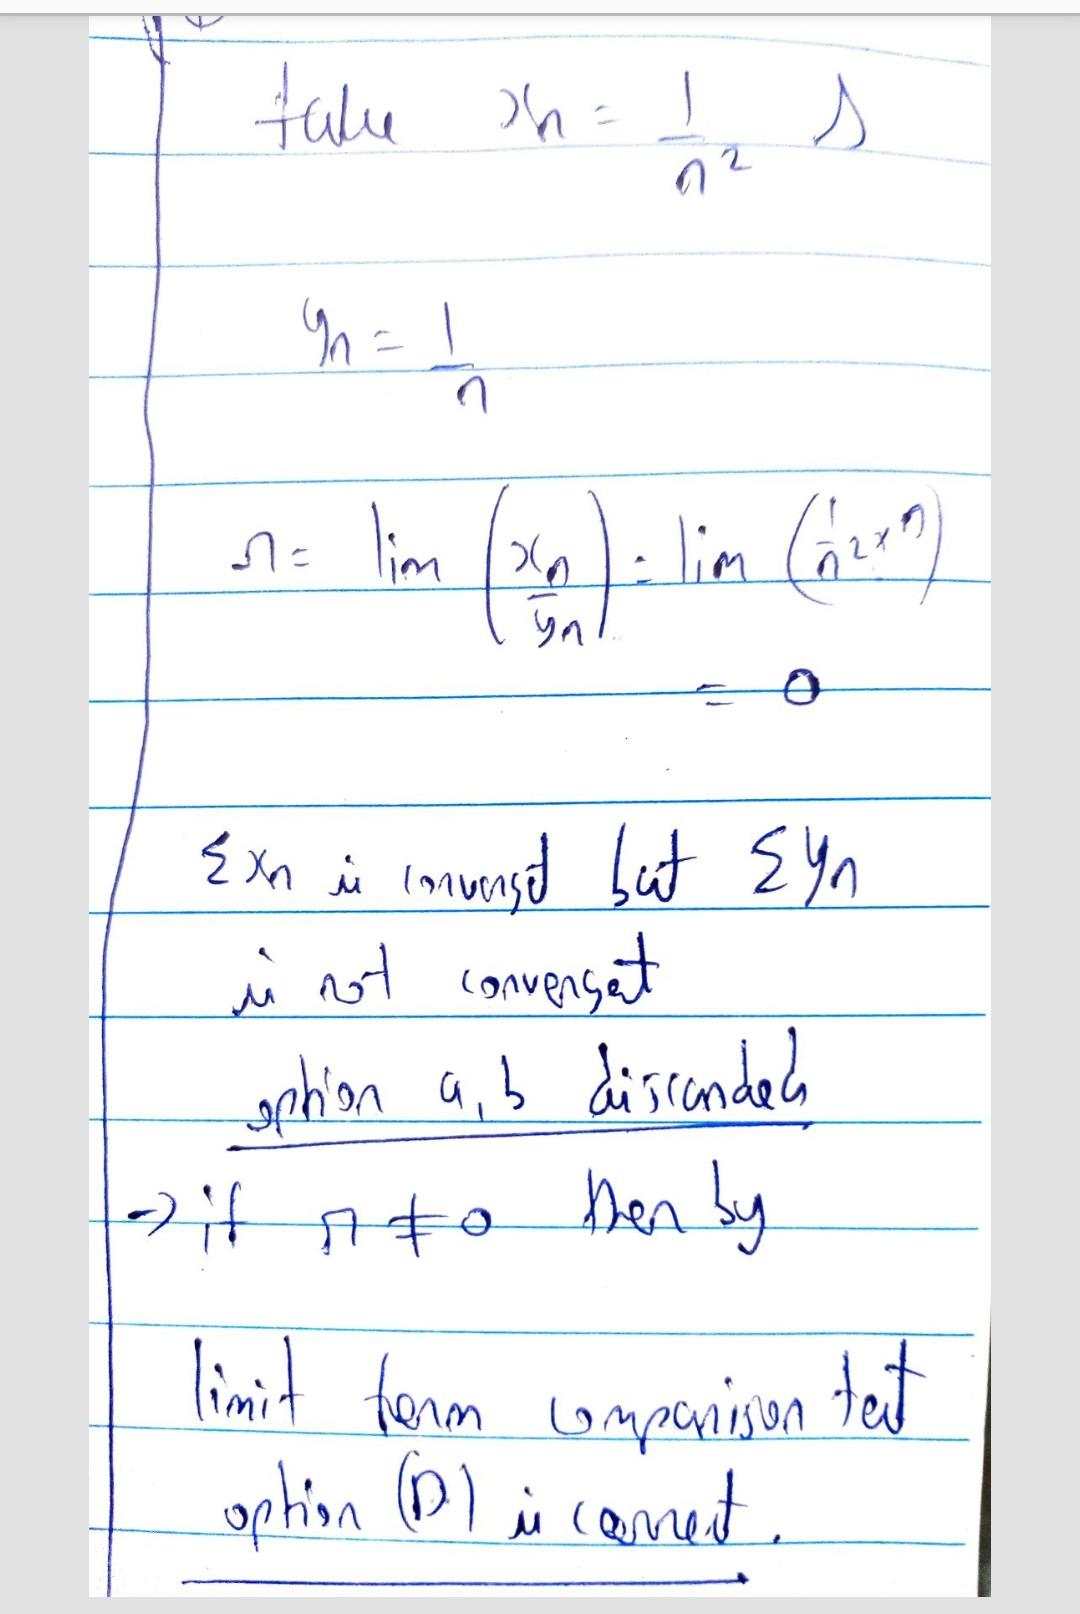 take xn = 1/n² &
yn = 1/n
r = lim (xn/yn) = lim (1/n² × n)
= 0
Σxn is convergt but Σyn
is not convergat
option a, b discarded
→ if r ≠ 0 then by
limit term comparison test
option (D) is correct.